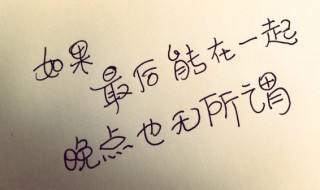 如果 最后能在一起
晚点也无所谓